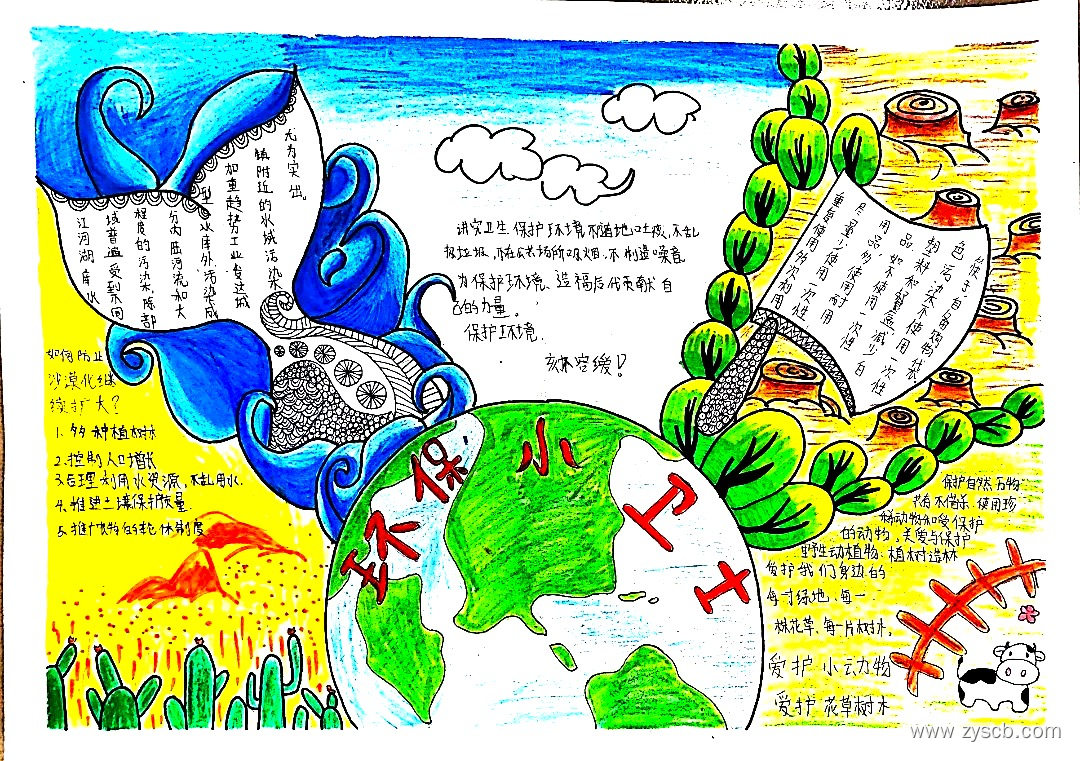 环保小卫士
尤为突出。
镇附近的水域污染
加重趋势工业发达城
型水库外污染成
分内陆河流和大
程度的污染,除部
域普遍受到不同
江河湖库水
讲究卫生,保护环境,不随地吐痰,不乱
扔垃圾,不在公共场所吸烟,不制造噪音。
为保护环境,造福后代贡献自
己的力量。
保护环境,
刻不容缓!
如何防止
沙漠化继
续扩大?
1、多种植树木
2、控制人口增长
3、合理利用水资源,不乱用水.
4、推建土壤保护质量.
5、推广牧物的轮休制度
使子自备购物袋
色污染不使用一次性
塑料和餐盒,减少白
品,如不使用一次性
用品,多使用耐用
尽量少使用一次性
重复使用多次利用
保护自然,万物
共存,不偕杀、使用珍
稀动物和受保护
的动物,关爱与保护
野生动植物、植树造林
爱护我们身边的
每寸绿地、每一
株花草、每一片树木。
爱护 小动物
爱护 花草树木
www.zyscb.com